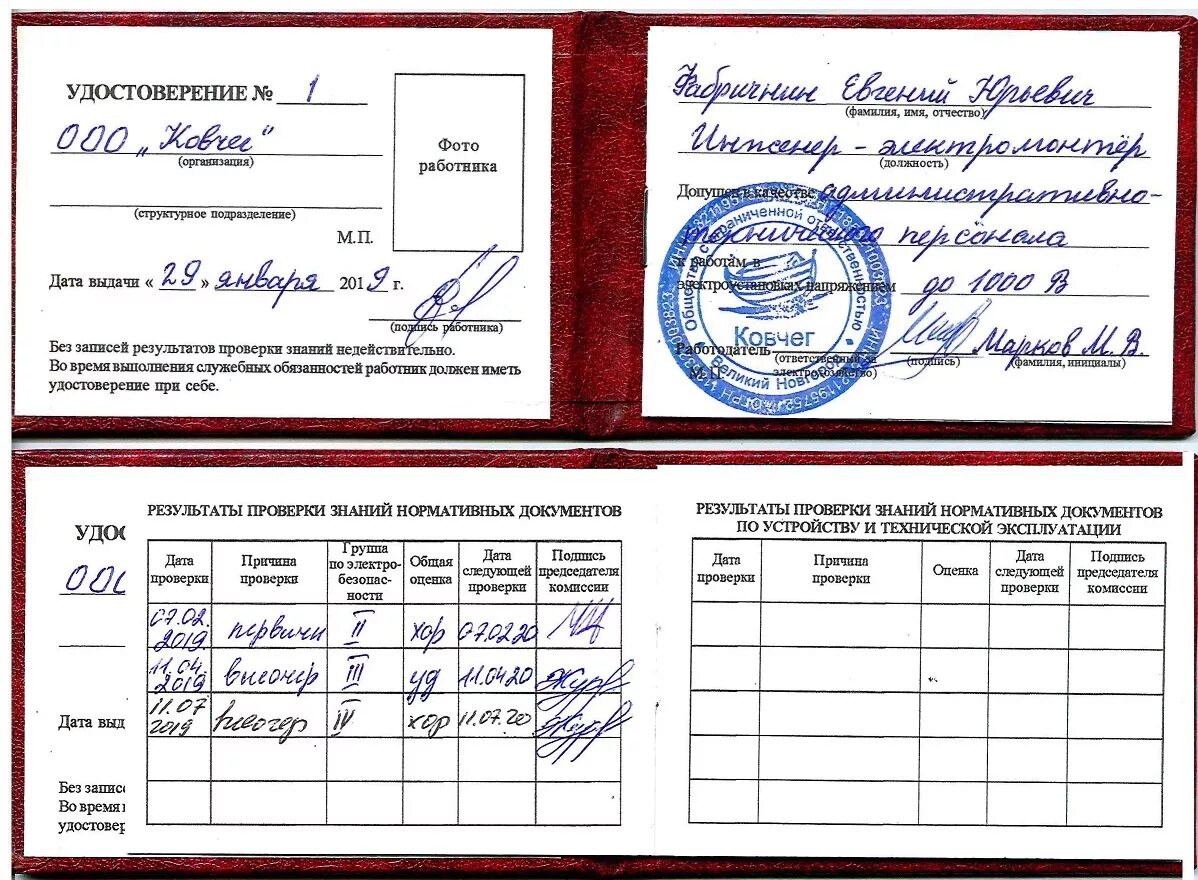 УДОСТОВЕРЕНИЕ № 1
ООО „Ковчег"
(организация)
(структурное подразделение)
М.П.
Фото
работника
Дата выдачи « 29 » января 2019 г.
(подпись работника)
Без записей результатов проверки знаний недействительно.
Во время выполнения служебных обязанностей работник должен иметь
удостоверение при себе.
Фабричнин Евгений Юрьевич
(фамилия, имя, отчество)
Инженер - электромонтёр
(должность)
Допущен в качестве административно-
технического персонала
к работам в
электроустановках напряжением до 1000 В
Работодатель Марков М. В.
(ответственный за (подпись) (фамилия, инициалы)
электрохозяйство)
М.П.
Общество с ограниченной ответственностью
Ковчег
Великий Новгород
УДОС
ООО
Дата выд
Без записе
Во время в
удостовер
РЕЗУЛЬТАТЫ ПРОВЕРКИ ЗНАНИЙ НОРМАТИВНЫХ ДОКУМЕНТОВ
Дата проверки Причина проверки Группа по электро-безопас-ности Общая оценка Дата следующей проверки Подпись председателя комиссии
07.02.2019 первичн II хор 07.02.20
11.04.2019 внеочер III уд 11.04.20
11.07 2019 внеочер IV хор 11.07.20
РЕЗУЛЬТАТЫ ПРОВЕРКИ ЗНАНИЙ НОРМАТИВНЫХ ДОКУМЕНТОВ
ПО УСТРОЙСТВУ И ТЕХНИЧЕСКОЙ ЭКСПЛУАТАЦИИ
Дата проверки Причина проверки Оценка Дата следующей проверки Подпись председателя комиссии